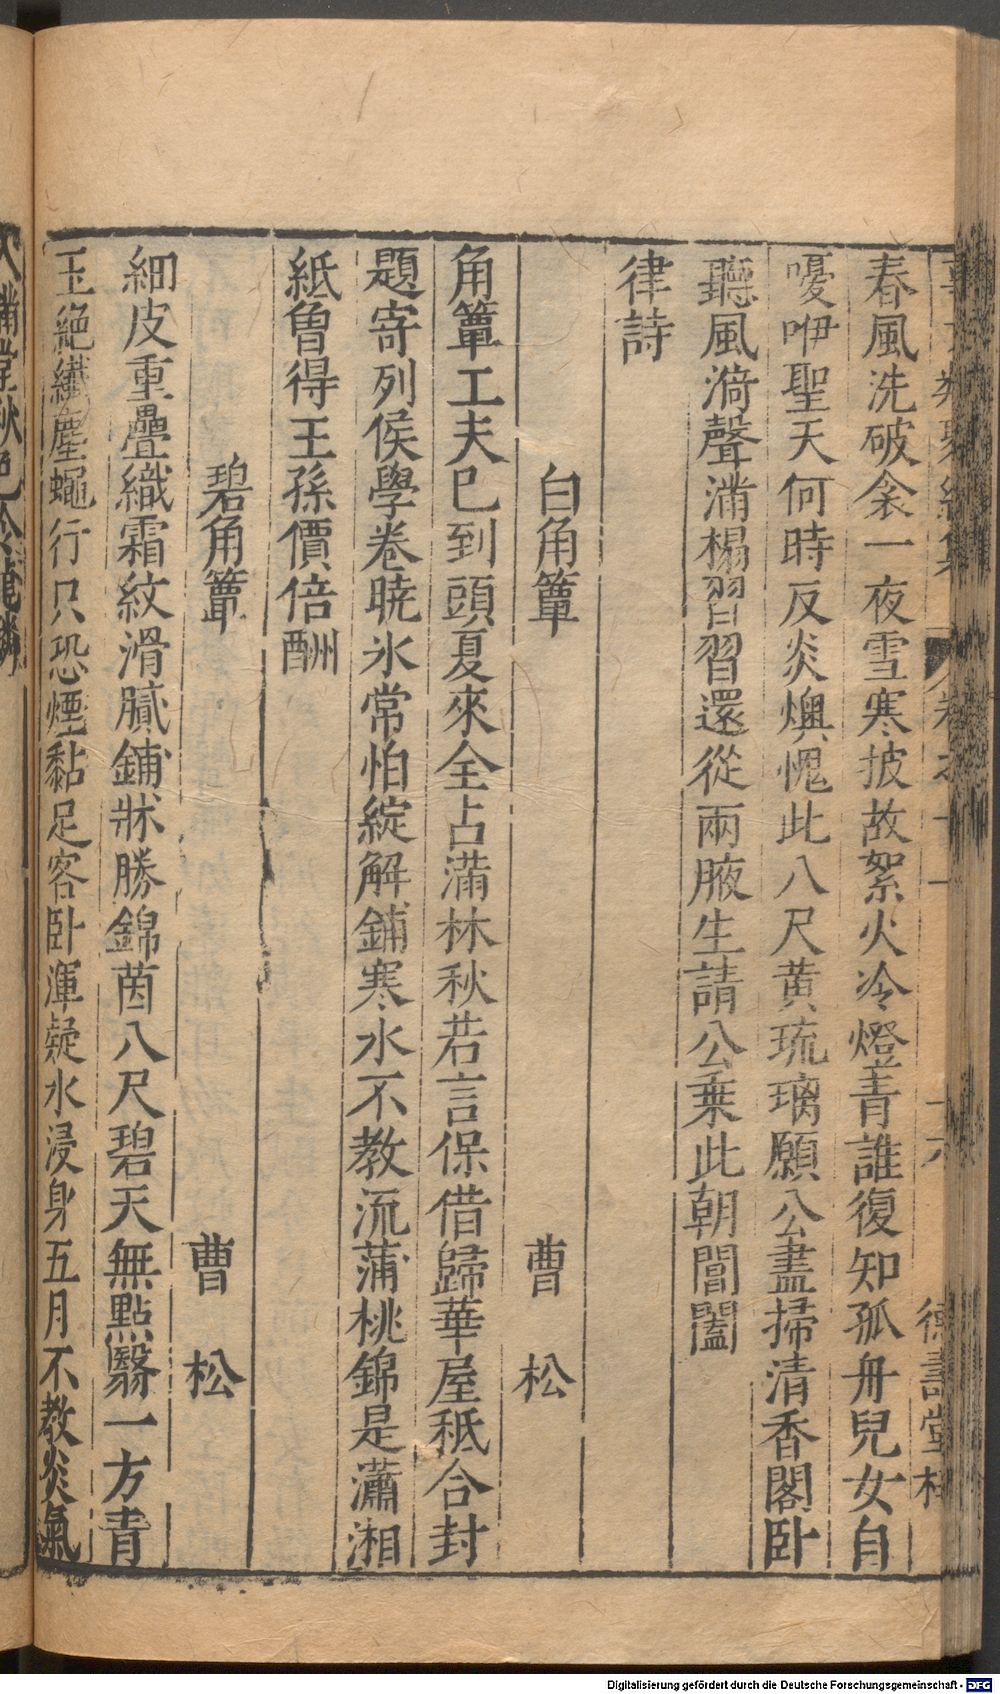 春風洗破衾一夜雪寒披故絮火冷燈青誰復知孤舟兒女自
嚘咿聖天何時反炎燠愧此八尺黄琉璃願公盡掃清香閣卧
聽風漪聲滿榻習習還從兩腋生請公乗此朝閶闔
律詩
白角簟 曹松
角簟工夫已到頭夏來全占滿林秋若言保借歸華屋秪合封
題寄列侯學卷曉氷常怕綻解鋪寒水不教流蒲桃錦是瀟湘
紙曾得王孫價倍酬
碧角簟 曹松
細皮重疊織霜紋滑膩鋪牀勝錦茵八尺碧天無點翳一方青
玉絶纖塵蠅行只恐煙黏足客卧渾疑水浸身五月不教炎氣
入滿堂秋色冷龍鱗
德壽堂梓
Digitalisierung gefördert durch die Deutsche Forschungsgemeinschaft - DFG